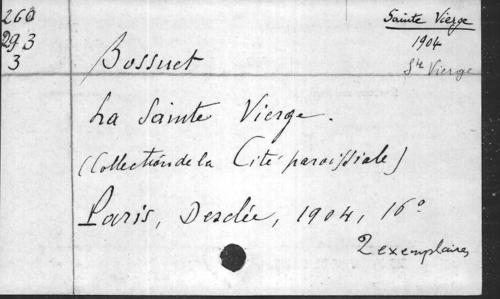 260
293
3
Sainte Vierge
1904
Ste Vierge
Bossuet
La Sainte Vierge.
(Collection de la Cité paroissiale)
Paris, Desclée, 1904, 16°
2 exemplaires